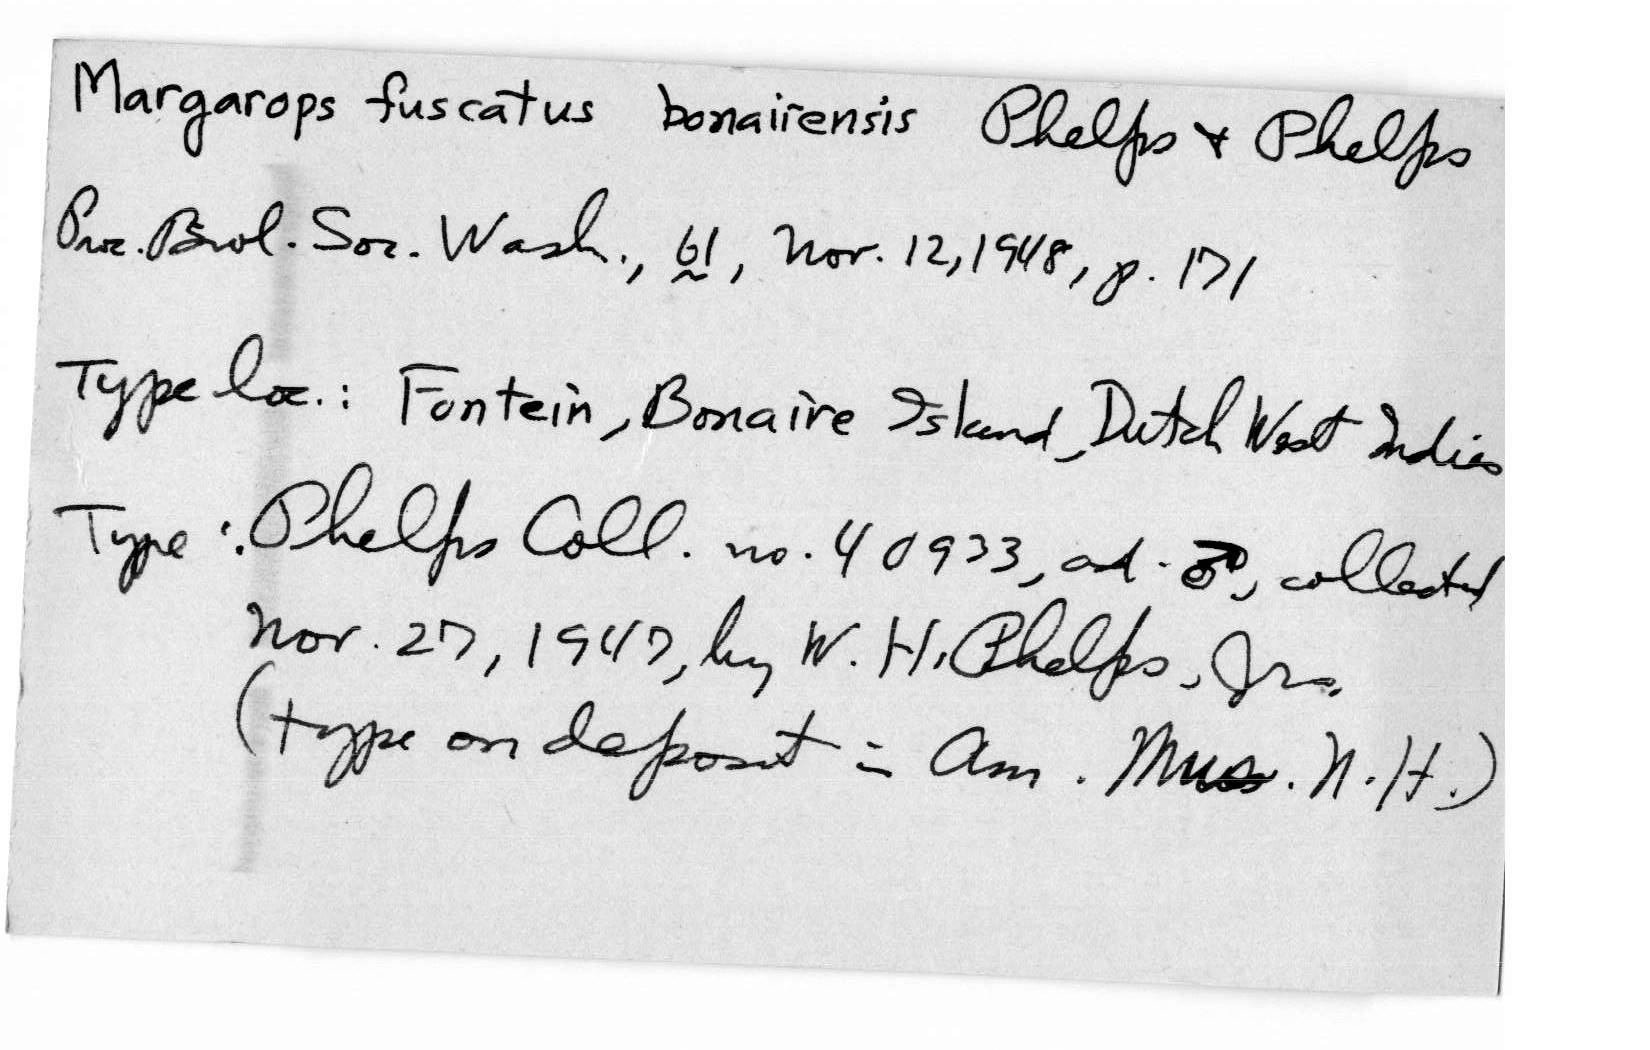 Margarops fuscatus bonairensis Phelps & Phelps
Proc. Biol. Soc. Wash., 61, Nov. 12, 1948, p. 171
Type loc.: Fontein, Bonaire Island, Dutch West Indies
Type: Phelps Coll. no. 40933, ad. ♂, collected
Nov. 27, 1947, by W. H. Phelps, Jr.
(type on deposit = Am. Mus. N. H.)